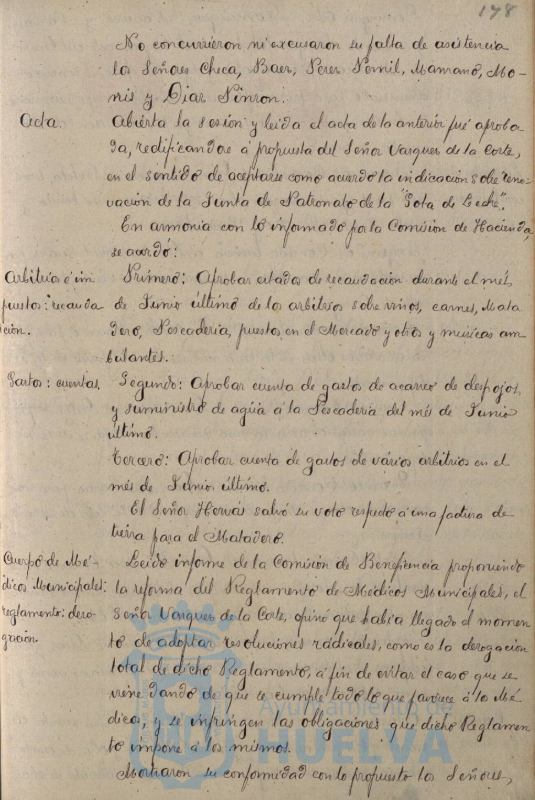 178
No concurrieron ni excusaron su falta de asistencia
los Señores Checa, Baer, Perez Nomil, Mamano, Mo-
nis y Diaz Pinzon.
Acta.
Abierta la sesión y leida el acta de la anterior fué aproba-
da, redificandose á propuesta del Señor Vazquez de la Corte,
en el sentido de aceptarse como acuerdo la indicación sobre reno-
vación de la Junta de Patronato de la "Gota de Leche".
En armonia con lo informado por la Comisión de Hacienda,
se acordó:
Arbitrios é im
puestos: recauda
ción.
Primero: Aprobar estados de recaudación durante el més
de Junio último de los arbitrios sobre vinos, carnes, Mata
dero, Pescadería, puestos en el Mercado y otros y músicas am-
bulantes.
Gastos: cuentas.
Segundo: Aprobar cuenta de gastos de acarreo de despojos
y suministro de agüa á la Pescaderia del més de Junio
último.
Tercero: Aprobar cuenta de gastos de vários arbitrios en el
més de Junio último.
El Señor Horvás salvó su voto respecto á una factura de
tierra para el Matadero.
Cuerpo de Mé-
dicos Municipales:
reglamento: dero-
gación.
Leido informe de la Comisión de Beneficencia proponiendo
la reforma del Reglamento de Médicos Municipales, el
Señor Vazquez de la Corte, opinó que habia llegado el momen-
to de adoptar resoluciones radicales, como es la derogación
total de dicho Reglamento, á fin de evitar el caso que se
viene dando de que se cumple todo lo que favorece á los Mé-
dicos, y se infringen las obligaciones que dicho Reglamen-
to impone á los mismos.
Mostraron su conformidad con lo propuesto los Señores,
Ayuntamiento de
HUELVA